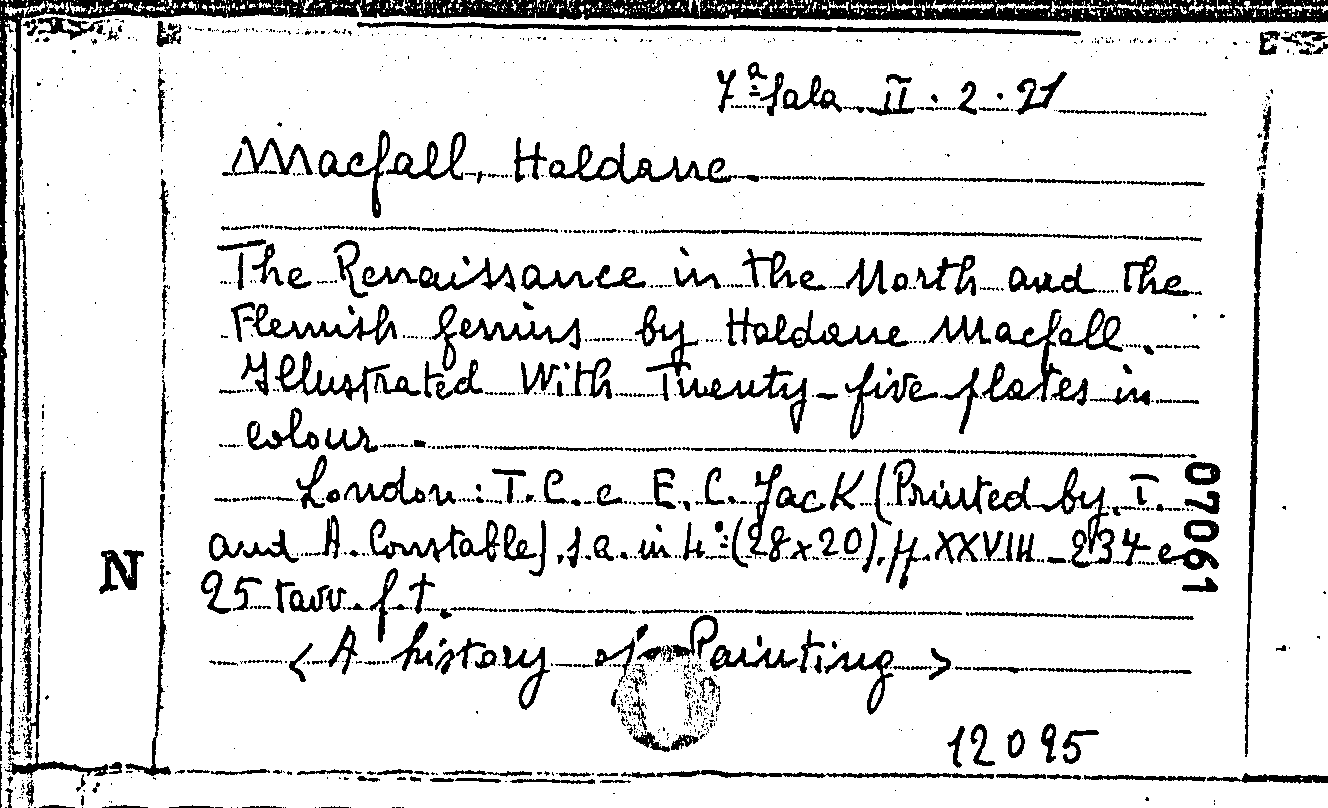 7ª Sala. II. 2. 21
Macfall, Haldane.
The Renaissance in the North and the
Flemish genius by Haldane Macfall.
Illustrated With Twenty-five plates in
colour.
London: T. C. e E. C. Jack (Printed by. T.
and A. Constable), s.a. in 4º: (28x20), pp. XXVIII-234 e
25 tavv. f.t.
<A history of Painting>
12095
07061
N